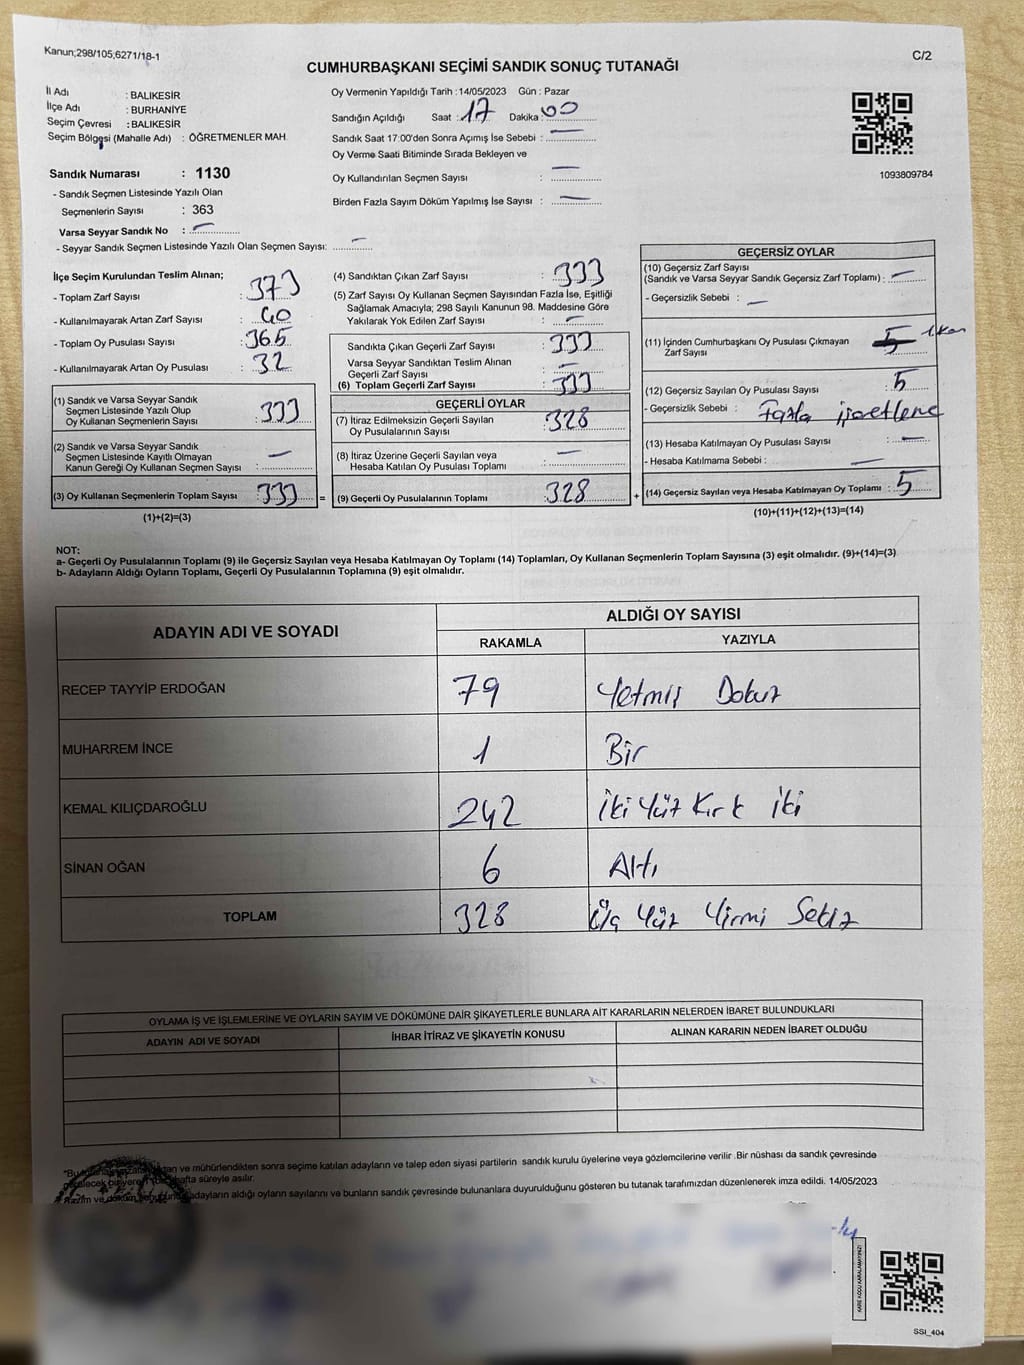 Kanun;298/105,6271/18-1
C/2
CUMHURBAŞKANI SEÇİMİ SANDIK SONUÇ TUTANAĞI
İl Adı : BALIKESİR
İlçe Adı : BURHANİYE
Seçim Çevresi : BALIKESİR
Seçim Bölgesi (Mahalle Adı) : ÖĞRETMENLER MAH.
Oy Vermenin Yapıldığı Tarih :14/05/2023 Gün : Pazar
Sandığın Açıldığı Saat : 17 Dakika : 00
Sandık Saat 17:00'den Sonra Açımış İse Sebebi : —
Oy Verme Saati Bitiminde Sırada Bekleyen ve
Oy Kullandırılan Seçmen Sayısı : —
Birden Fazla Sayım Döküm Yapılmış İse Sayısı : —
1093809784
Sandık Numarası : 1130
- Sandık Seçmen Listesinde Yazılı Olan
Seçmenlerin Sayısı : 363
Varsa Seyyar Sandık No : —
- Seyyar Sandık Seçmen Listesinde Yazılı Olan Seçmen Sayısı: —
İlçe Seçim Kurulundan Teslim Alınan;
- Toplam Zarf Sayısı : 373
- Kullanılmayarak Artan Zarf Sayısı : 40
- Toplam Oy Pusulası Sayısı : 365
- Kullanılmayarak Artan Oy Pusulası : 32
(1) Sandık ve Varsa Seyyar Sandık
Seçmen Listesinde Yazılı Olup
Oy Kullanan Seçmenlerin Sayısı : 333
(2) Sandık ve Varsa Seyyar Sandık
Seçmen Listesinde Kayıtlı Olmayan
Kanun Gereği Oy Kullanan Seçmen Sayısı : —
(3) Oy Kullanan Seçmenlerin Toplam Sayısı : 333 =
(1)+(2)=(3)
(4) Sandıktan Çıkan Zarf Sayısı : 333
(5) Zarf Sayısı Oy Kullanan Seçmen Sayısından Fazla İse, Eşitliği
Sağlamak Amacıyla; 298 Sayılı Kanunun 98. Maddesine Göre
Yakılarak Yok Edilen Zarf Sayısı : —
Sandıkta Çıkan Geçerli Zarf Sayısı : 333
Varsa Seyyar Sandıktan Teslim Alınan
Geçerli Zarf Sayısı : —
(6) Toplam Geçerli Zarf Sayısı : 333
GEÇERLİ OYLAR
(7) İtiraz Edilmeksizin Geçerli Sayılan
Oy Pusulalarının Sayısı : 328
(8) İtiraz Üzerine Geçerli Sayılan veya
Hesaba Katılan Oy Pusulası Toplamı : —
(9) Geçerli Oy Pusulalarının Toplamı : 328 +
GEÇERSİZ OYLAR
(10) Geçersiz Zarf Sayısı
(Sandık ve Varsa Seyyar Sandık Geçersiz Zarf Toplamı) : —
- Geçersizlik Sebebi : —
(11) İçinden Cumhurbaşkanı Oy Pusulası Çıkmayan
Zarf Sayısı : 5
(12) Geçersiz Sayılan Oy Pusulası Sayısı : 5
- Geçersizlik Sebebi : Fazla işaretleme
(13) Hesaba Katılmayan Oy Pusulası Sayısı : —
- Hesaba Katılmama Sebebi : —
(14) Geçersiz Sayılan veya Hesaba Katılmayan Oy Toplamı : 5
(10)+(11)+(12)+(13)=(14)
NOT:
a- Geçerli Oy Pusulalarının Toplamı (9) ile Geçersiz Sayılan veya Hesaba Katılmayan Oy Toplamı (14) Toplamları, Oy Kullanan Seçmenlerin Toplam Sayısına (3) eşit olmalıdır. (9)+(14)=(3)
b- Adayların Aldığı Oyların Toplamı, Geçerli Oy Pusulalarının Toplamına (9) eşit olmalıdır.
ADAYIN ADI VE SOYADI
ALDIĞI OY SAYISI
RAKAMLA YAZIYLA
RECEP TAYYİP ERDOĞAN 79 Yetmiş Dokuz
MUHARREM İNCE 1 Bir
KEMAL KILIÇDAROĞLU 242 İki Yüz Kırk iki
SİNAN OĞAN 6 Altı
TOPLAM 328 Üç Yüz Yirmi Sekiz
OYLAMA İŞ VE İŞLEMLERİNE VE OYLARIN SAYIM VE DÖKÜMÜNE DAİR ŞİKAYETLERLE BUNLARA AİT KARARLARIN NELERDEN İBARET BULUNDUKLARI
ADAYIN ADI VE SOYADI İHBAR İTİRAZ VE ŞİKAYETİN KONUSU ALINAN KARARIN NEDEN İBARET OLDUĞU
ve mühürlendikten sonra seçime katılan adayların ve talep eden siyasi partilerin sandık kurulu üyelerine veya gözlemcilerine verilir .Bir nüshası da sandık çevresinde
hafta süreyle asılır.
adayların aldığı oyların sayılarını ve bunların sandık çevresinde bulunanlara duyurulduğunu gösteren bu tutanak tarafımızdan düzenlenerek imza edildi. 14/05/2023
KARE KODU KARALAMAYINIZ
SSI_404